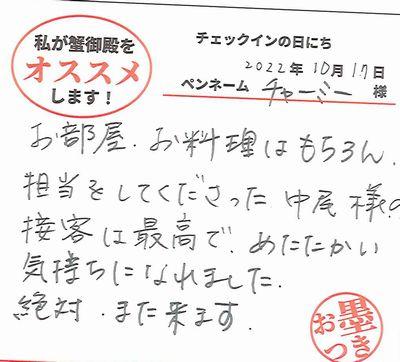 私が蟹御殿を
オススメ
します！
チェックインの日にち
2022年10月17日
ペンネーム チャーミー 様
お部屋、お料理はもちろん、
担当をしてくださった中尾様の
接客は最高で、あたたかい
気持ちになれました。
絶対、また来ます。
お墨
つき